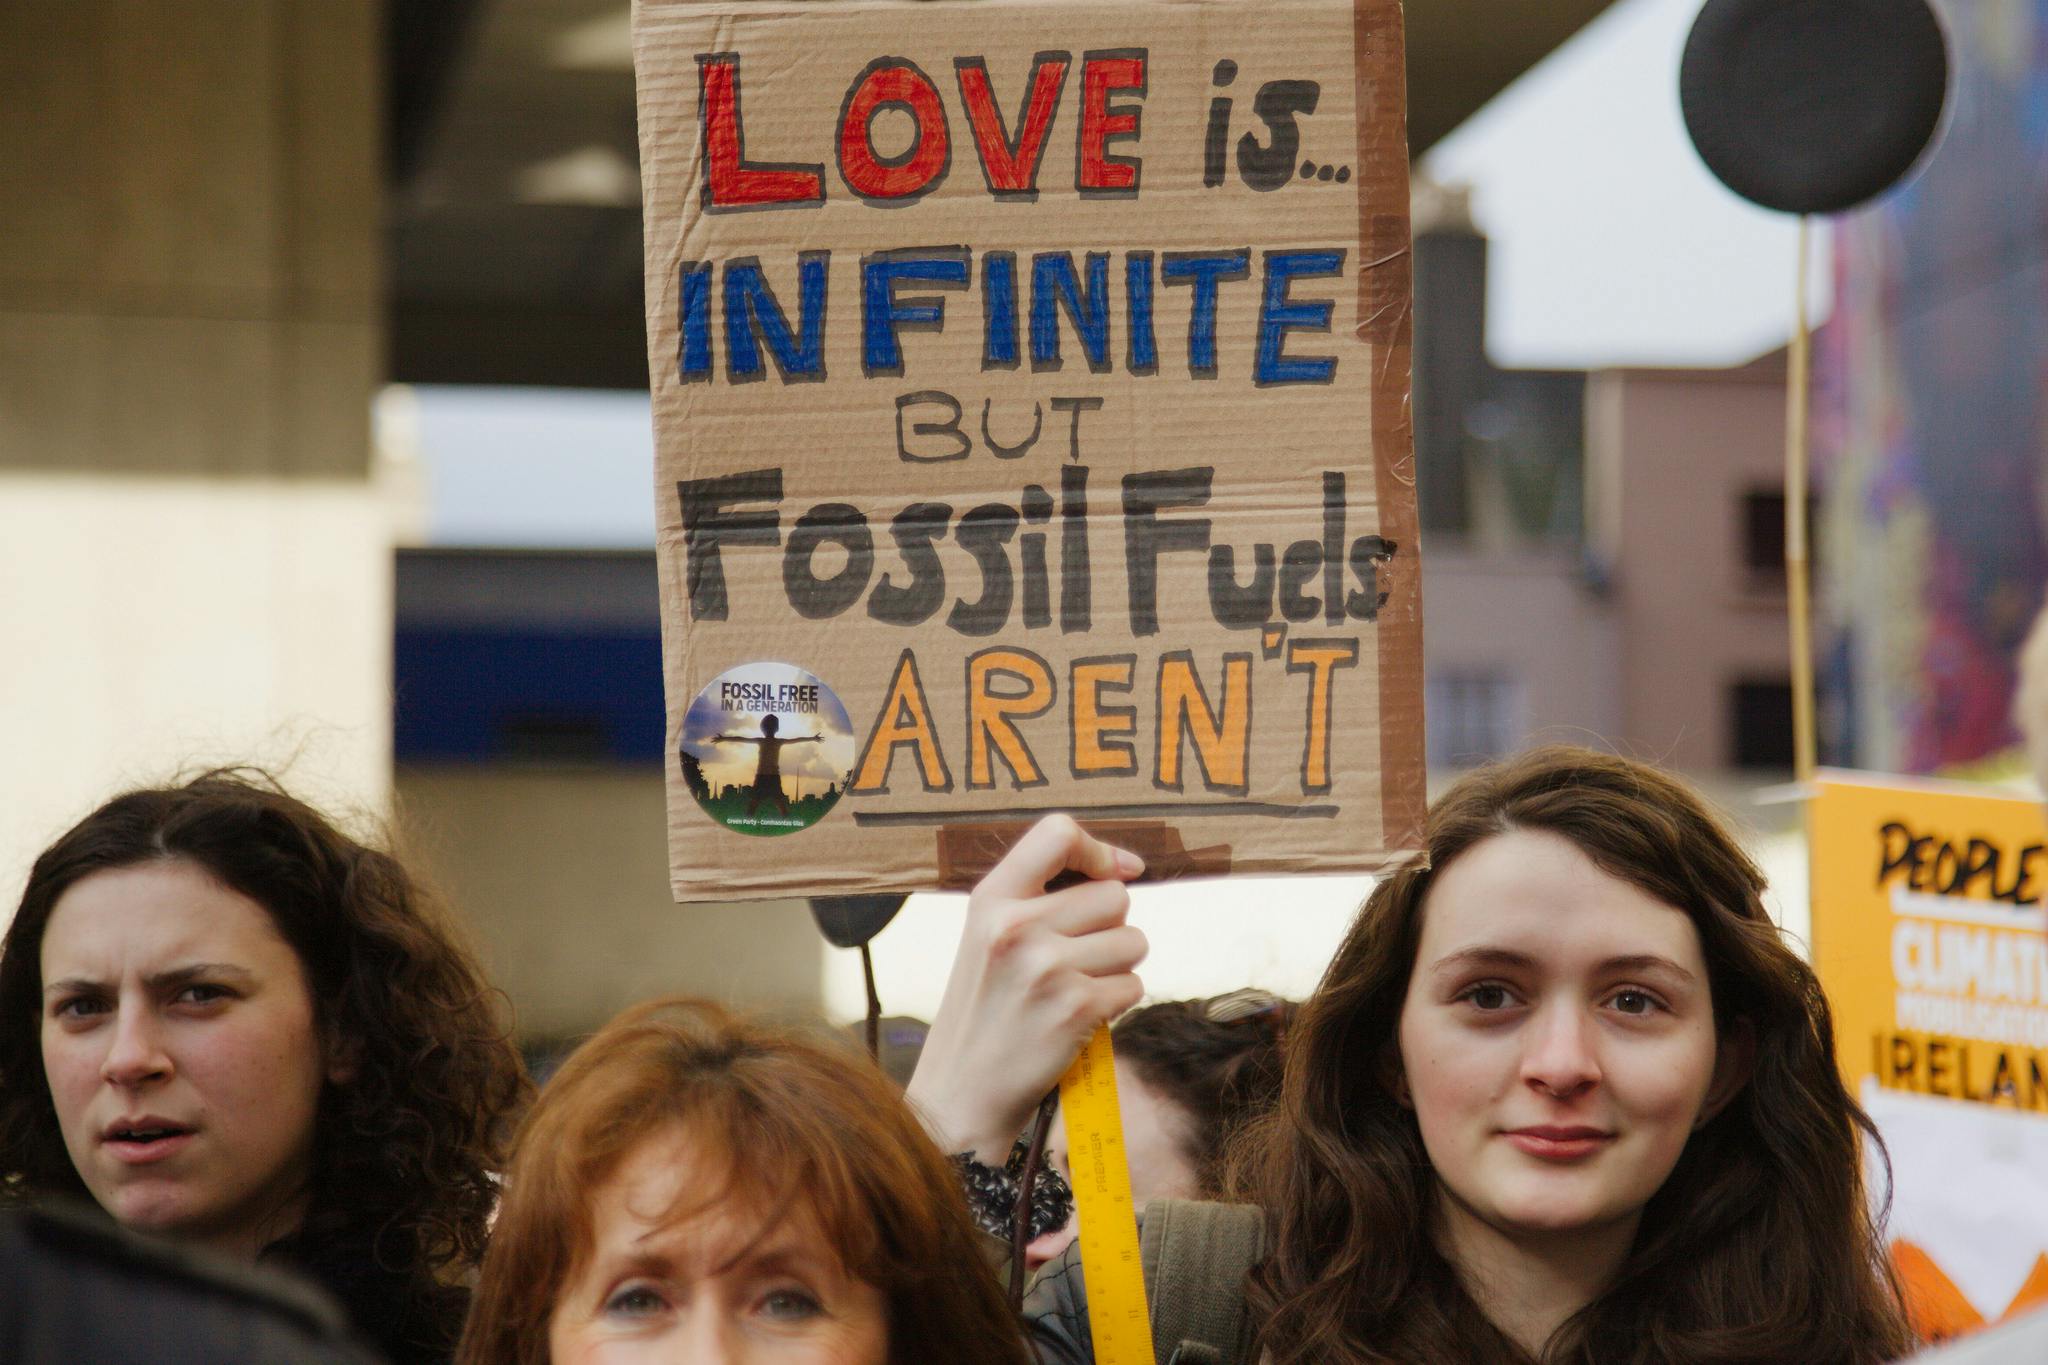 LOVE is...
INFINITE
BUT
Fossil Fuels
AREN'T
FOSSIL FREE
IN A GENERATION
Green Party - Comhaontas Glas
PREMIER
MADE IN
PEOPLE